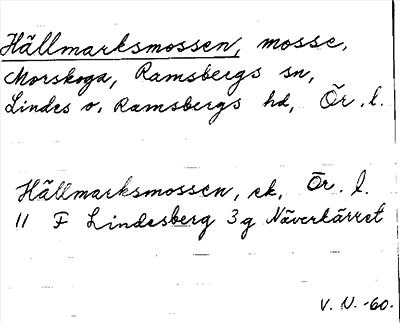 Hällmarksmossen, mosse,
Morskoga, Ramsbergs sn,
Lindes o. Ramsbergs hd, Ör. l.
Hällmarksmossen, ek. Ör. l.
11 F Lindesberg 3 g Näverkärret
V. N. -60.